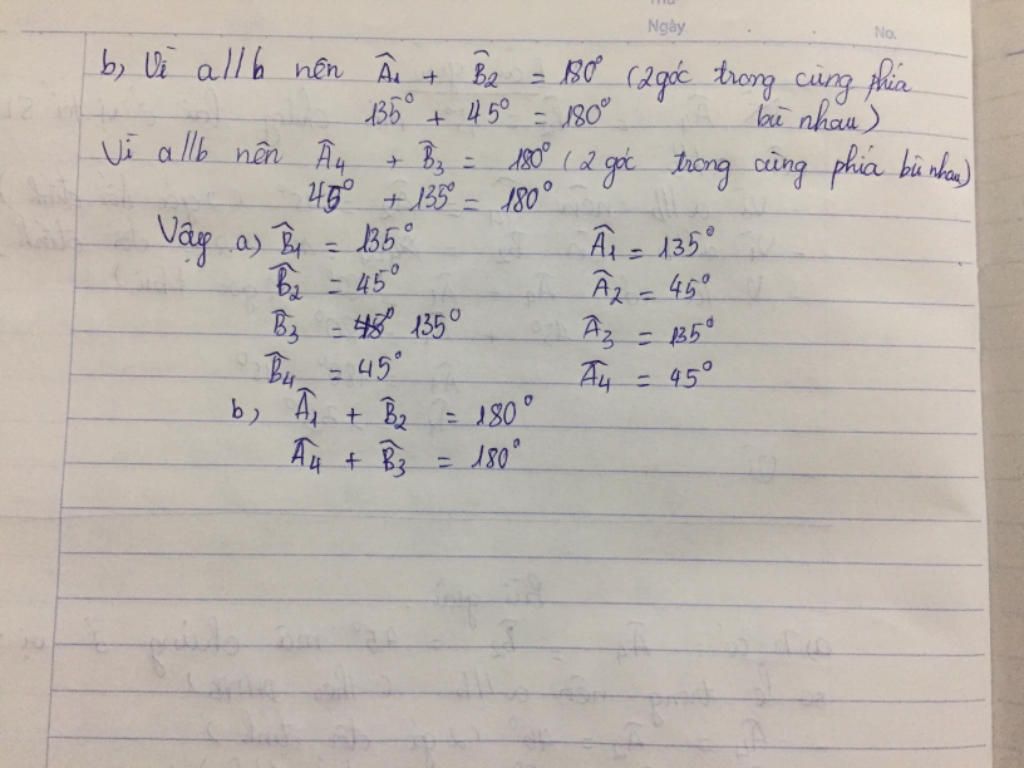 Ngày No.
b, Vì a//b nên Â₁ + B̂₂ = 180° (2 góc trong cùng phía
135° + 45° = 180° bù nhau)
Vì a//b nên Â₄ + B̂₃ = 180° (2 góc trong cùng phía bù nhau)
45° + 135° = 180°
Vậy a) B̂₁ = 135° Â₁ = 135°
B̂₂ = 45° Â₂ = 45°
B̂₃ = 135° Â₃ = 135°
B̂₄ = 45° Â₄ = 45°
b, Â₁ + B̂₂ = 180°
Â₄ + B̂₃ = 180°